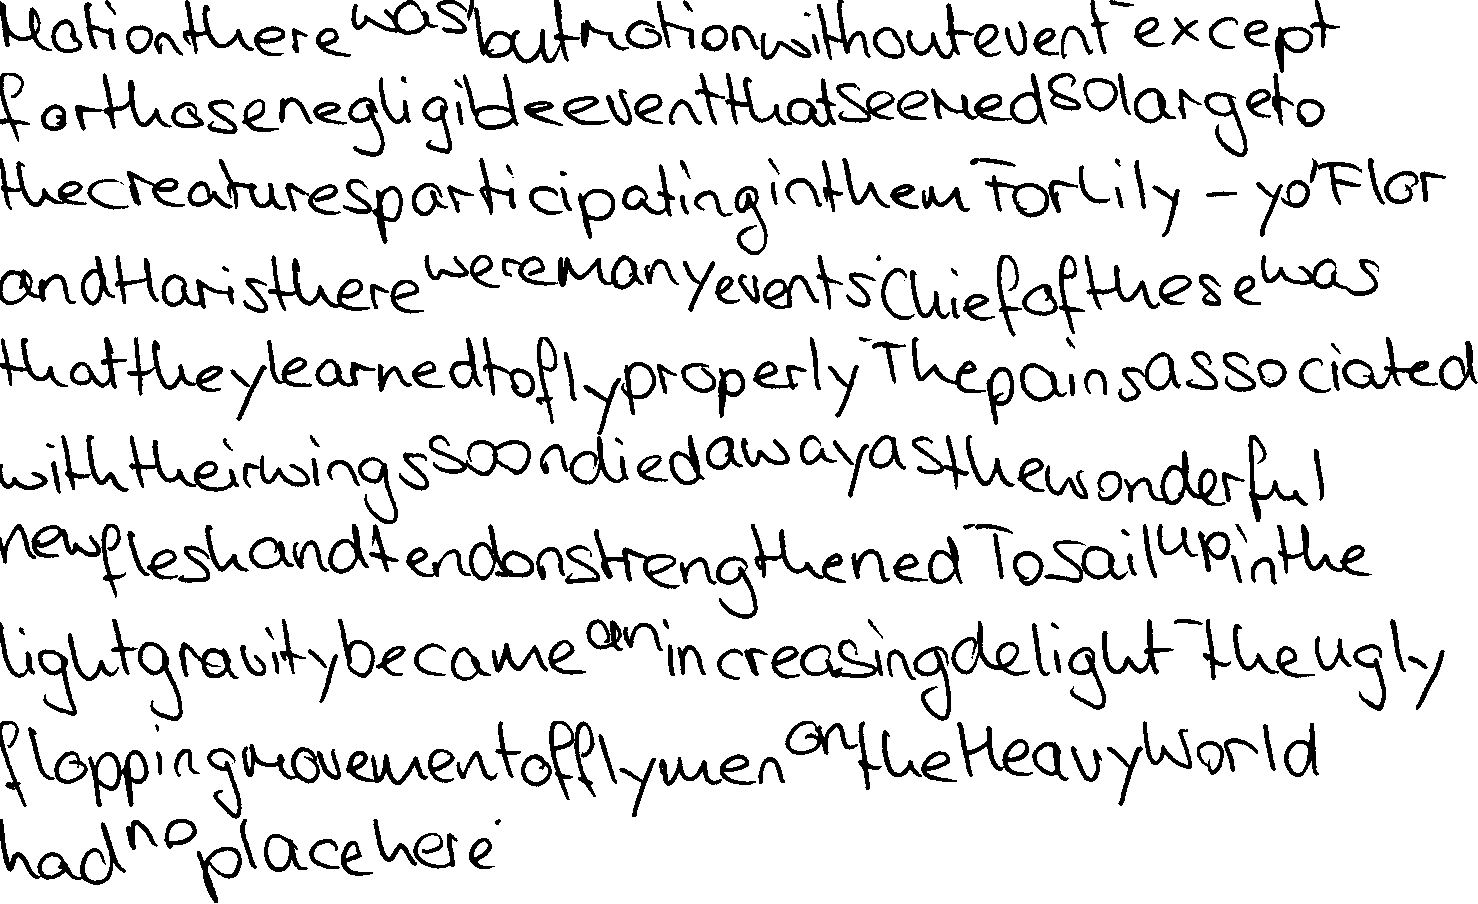 Motion there was, but motion without event - except
for those negligible event that seemed so large to
the creatures participating in them For Lily - yo, Flor
and Haris there were many events. Chief of these was
that they learned to fly properly. The pains associated
with their wings soon died away as the wonderful
new flesh and tendon strengthened To sail up in the
light gravity became an increasing delight - the ugly
flopping movement of flymen on the Heavy World
had no place here.